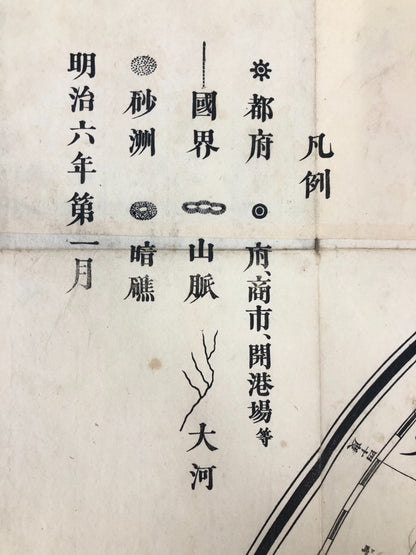 凡例
都府 府、商市、開港場等
國界 山脈 大河
砂洲 暗礁
明治六年第一月
四十度